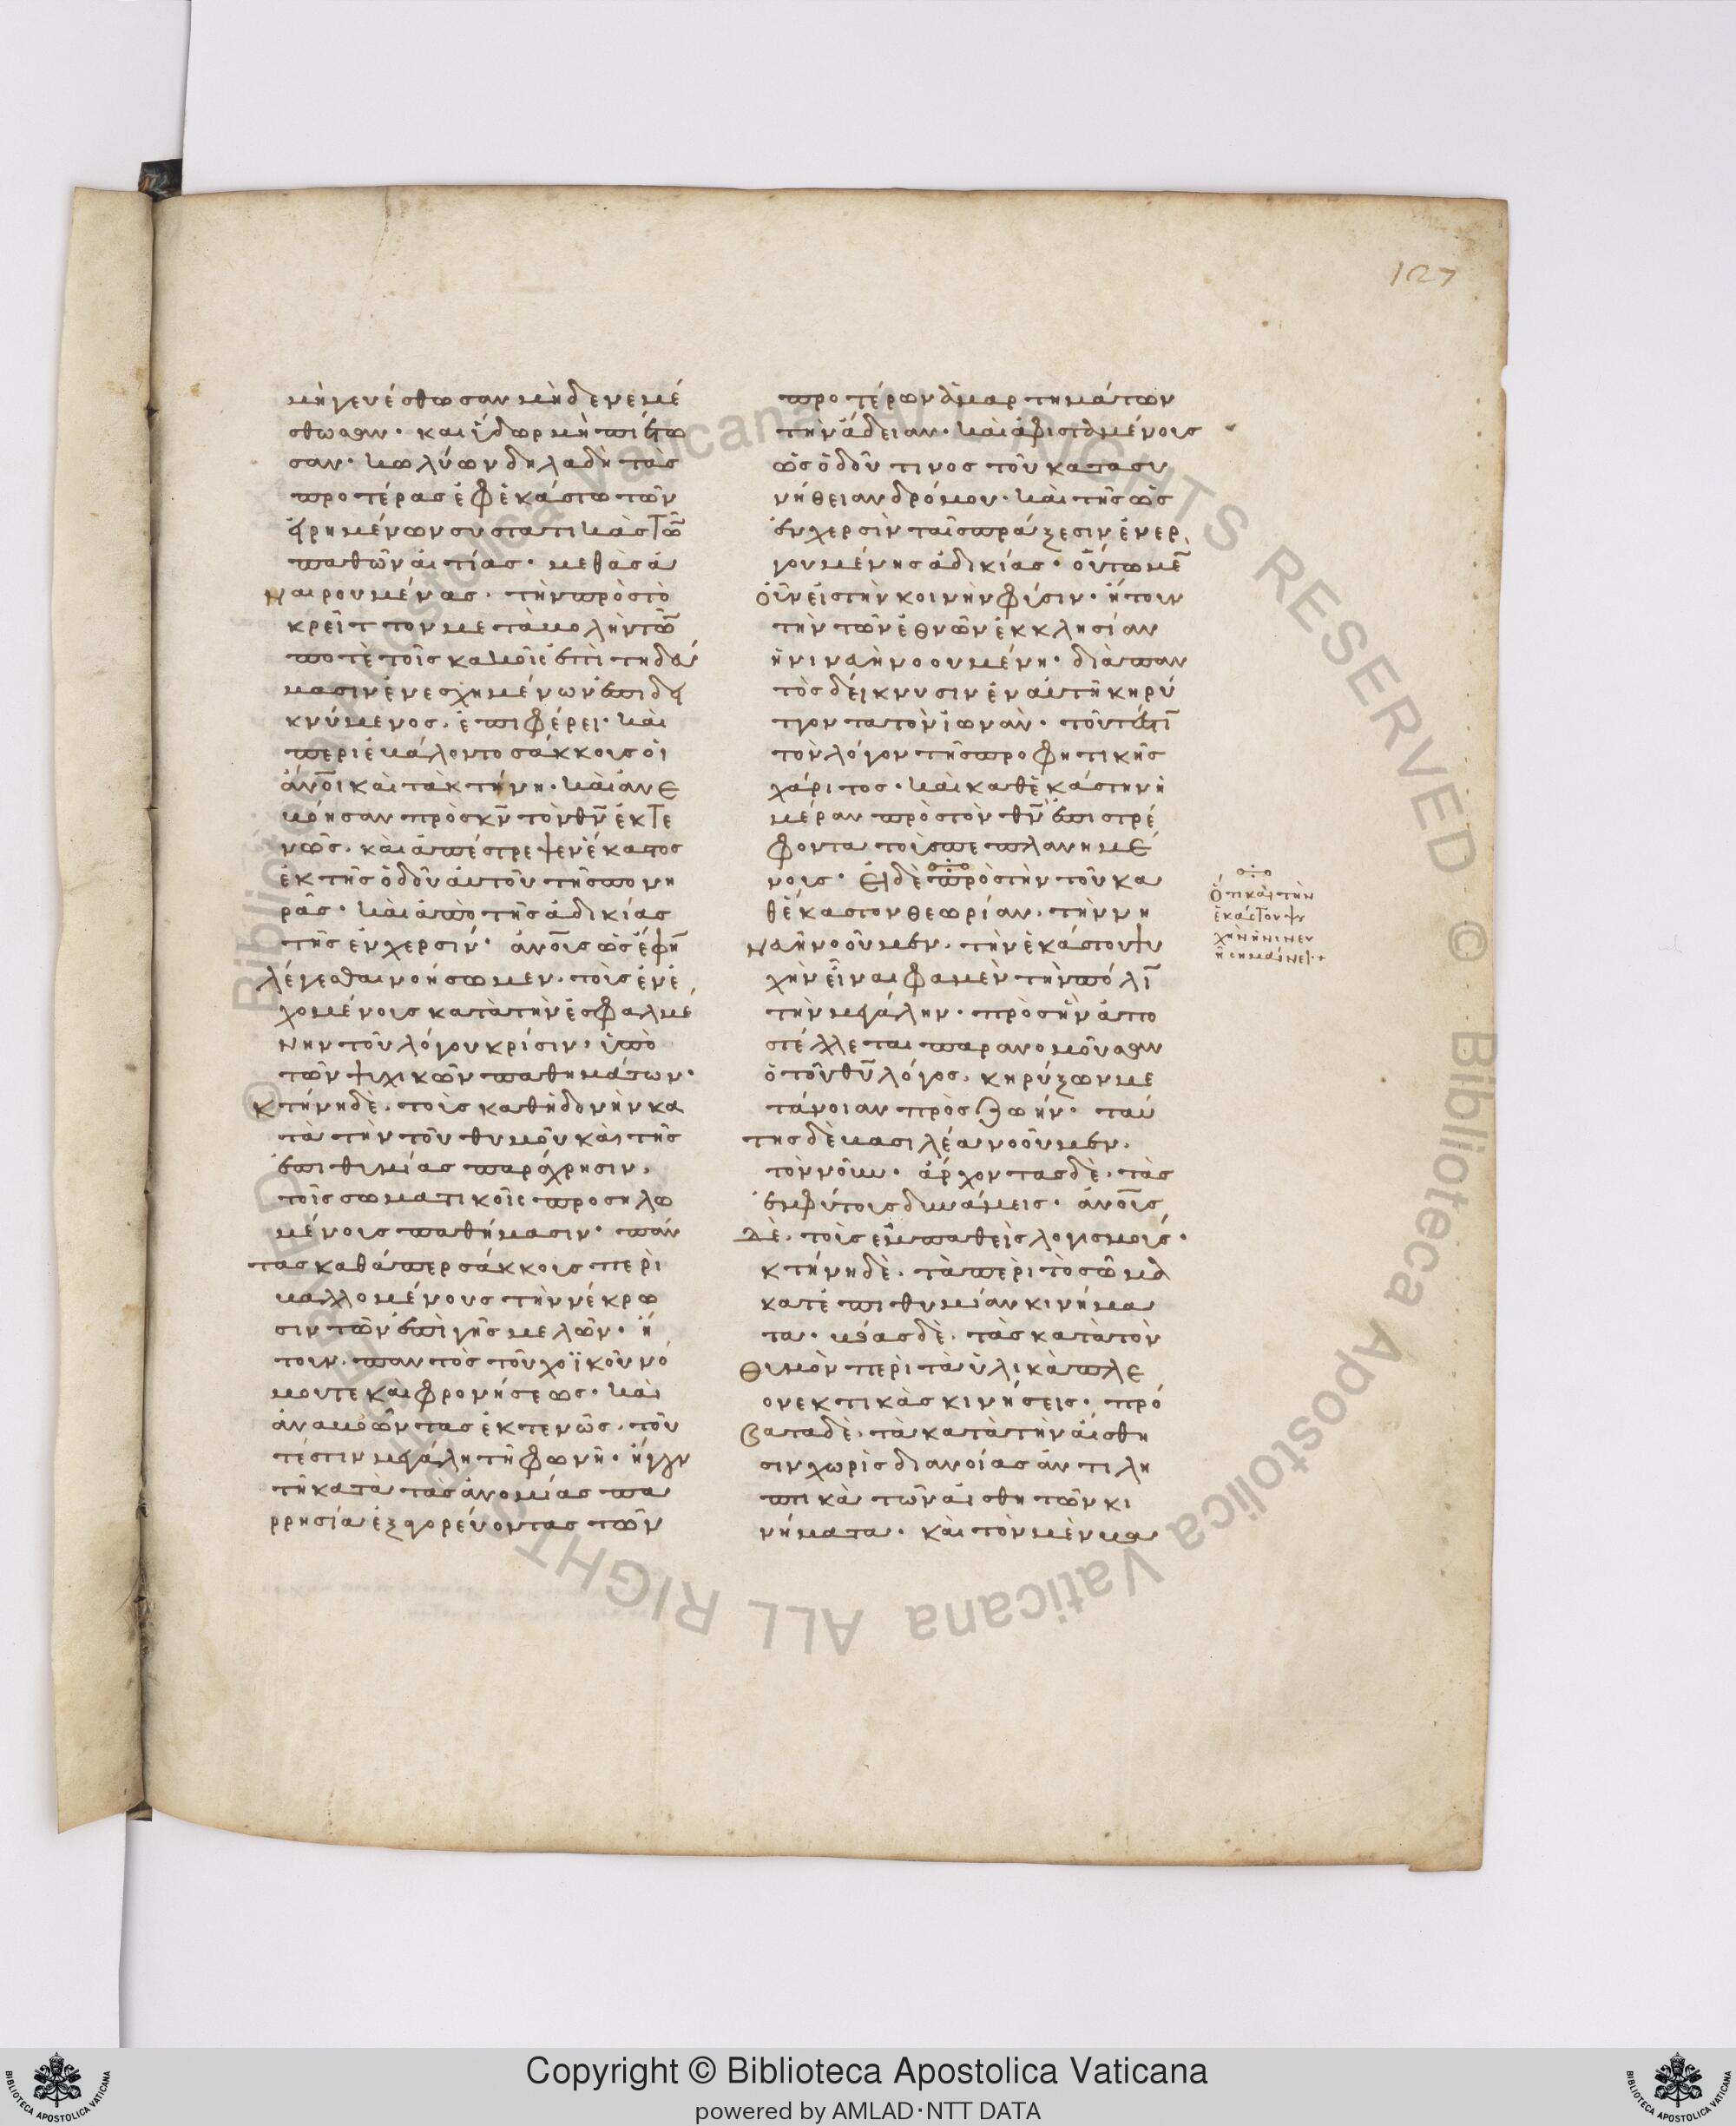 127
μὴ γευσάσθωσαν μηδὲ νεμέ
σθωσαν· καὶ ὕδωρ μὴ πιέτω
σαν· κωλύων δηλαδὴ τὰς
προτέρας ἐφ ἑκάστω τῶν
εἰρημένων συστατικὰς τῶ̅
παθῶν αἰτίας· μεθ ἃς ἀ
ναιρουμένας. τὴν πρὸς τὸ
κρεῖττον μεταβολὴν τῶ̅
ποτὲ τοῖς κακοῖς ἐπιτηδεύ
μασιν ἐνεσχημένων ἐπιδει
κνύμενος. ἐπιφέρει· καὶ
περιεβάλοντο σάκκους οἱ
ἀν̅οι καὶ τὰ κτήνη· καὶ ἀνε
βόησαν πρὸς κ̅ν τὸν θ̅ν ἐκτε
νῶς. καὶ ἀπέστρεψεν ἕκαστος
ἐκ τῆς ὁδοῦ αὐτοῦ τῆς πονη
ρᾶς· καὶ ἀπὸ τῆς ἀδικίας
τῆς ἐν χερσίν· ἀν̅ους ὡς ἔφη̅
λέγεσθαι νοήσωμεν. τοὺς ἐνε
χομένους κατὰ τὴν ἐσφαλμέ
νην τοῦ λόγου κρίσιν. ὑπὸ
τῶν ψυχικῶν παθημάτων·
κτήνη δὲ. τοὺς καθ ἡδονὴν κα
τὰ τὴν τοῦ θυμοῦ καὶ τῆς
ἐπιθυμίας παράχρησιν.
τοῖς σωματικοῖς προσηλω
μένους παθήμασιν· πάν
τας καθάπερ σάκκους περι
βαλλομένους τὴν νέκρω
σιν τῶν ἐπὶ γῆς μελῶν· ἤ
τουν. παντὸς τοῦ χοϊκοῦ νό
μου τε καὶ φρονήσεως· καὶ
ἀναβοῶντας ἐκτενῶς. τοῦ
τέστιν μεγάλη τῆ φωνῆ· ἤγουν
τῆ κατὰ τὰς ἀνομίας πα
ρρησία ἐξαγορεύοντας τῶν
προτέρων ἁμαρτημάτων
τὴν ἄδειαν· καὶ ἀφισταμένους
ὡς ὁδοῦ τινος τοῦ κατα συ
νήθειαν δρόμου· καὶ τῆς ὡς
ἐν χερσὶν ταῖς πράξεσιν ἐνερ
γουμένης ἀδικίας· οὕτω με̅
οὖν εἰς τὴν κοινὴν φύσιν· ἤτουν
τὴν τῶν ἐθνῶν ἐκκλησίαν
ἡ νινευὴ νοουμένη· διὰ παν
τὸς δείκνυσιν ἐν αὐτῆ κηρύ
ττοντα τὸν ἰωνᾶν· τουτέστι̅
τὸν λόγον τῆς προφητικῆς
χάριτος· καὶ καθ ἑκάστην ἡ
μέραν πρὸς τὸν θ̅ν ἐπιστρέ
φοντα τοὺς πεπλανημέ
νους· Εἰ δὲ πρὸς τὴν τοῦ κα
θ ἕκαστον θεωρίαν. τὴν νι
νευὴ νοοῦμεν. τὴν ἑκάστου ψυ
χὴν εἶναι φαμὲν τὴν πόλι̅
τὴν μεγάλην· πρὸς ἣν ἀπο
στέλλεται παρανομοῦσαν
ὁ τοῦ θ̅υ λόγος. κηρύξων με
τάνοιαν πρὸς ζωήν· ταύ
της δὲ βασιλέα νοοῦμεν.
τὸν νοῦν· ἄρχοντας δὲ. τὰς
ἐμφύτους δυνάμεις· ἀν̅ους
δὲ. τοὺς ἐμπαθεῖς λογισμούς·
κτήνη δὲ. τὰ περὶ τὸ σῶμα
κατ ἐπιθυμίαν κινήμα
τα· βόας δὲ. τὰς κατὰ τὸν
θυμὸν περὶ τὰ ὑλικὰ πλε
ονεκτικὰς κινήσεις· πρό
βατα δὲ. τὰ κατὰ τὴν αἴσθη
σιν χωρὶς διανοίας ἀντιλη
πτικὰ τῶν αἰσθητῶν κι
νήματα· καὶ τὸν μὲν βα
Ὅτι καὶ τὴν
ἑκάστου ψυ
χὴν ἡ νινευ
ὴ σημαίνει·+
Copyright © Biblioteca Apostolica Vaticana
powered by AMLAD·NTT DATA
BIBLIOTECA APOSTOLICA VATICANA
BIBLIOTECA APOSTOLICA VATICANA
© Biblioteca Apostolica Vaticana ALL RIGHTS RESERVED
© Biblioteca Apostolica Vaticana ALL RIGHTS RESERVED